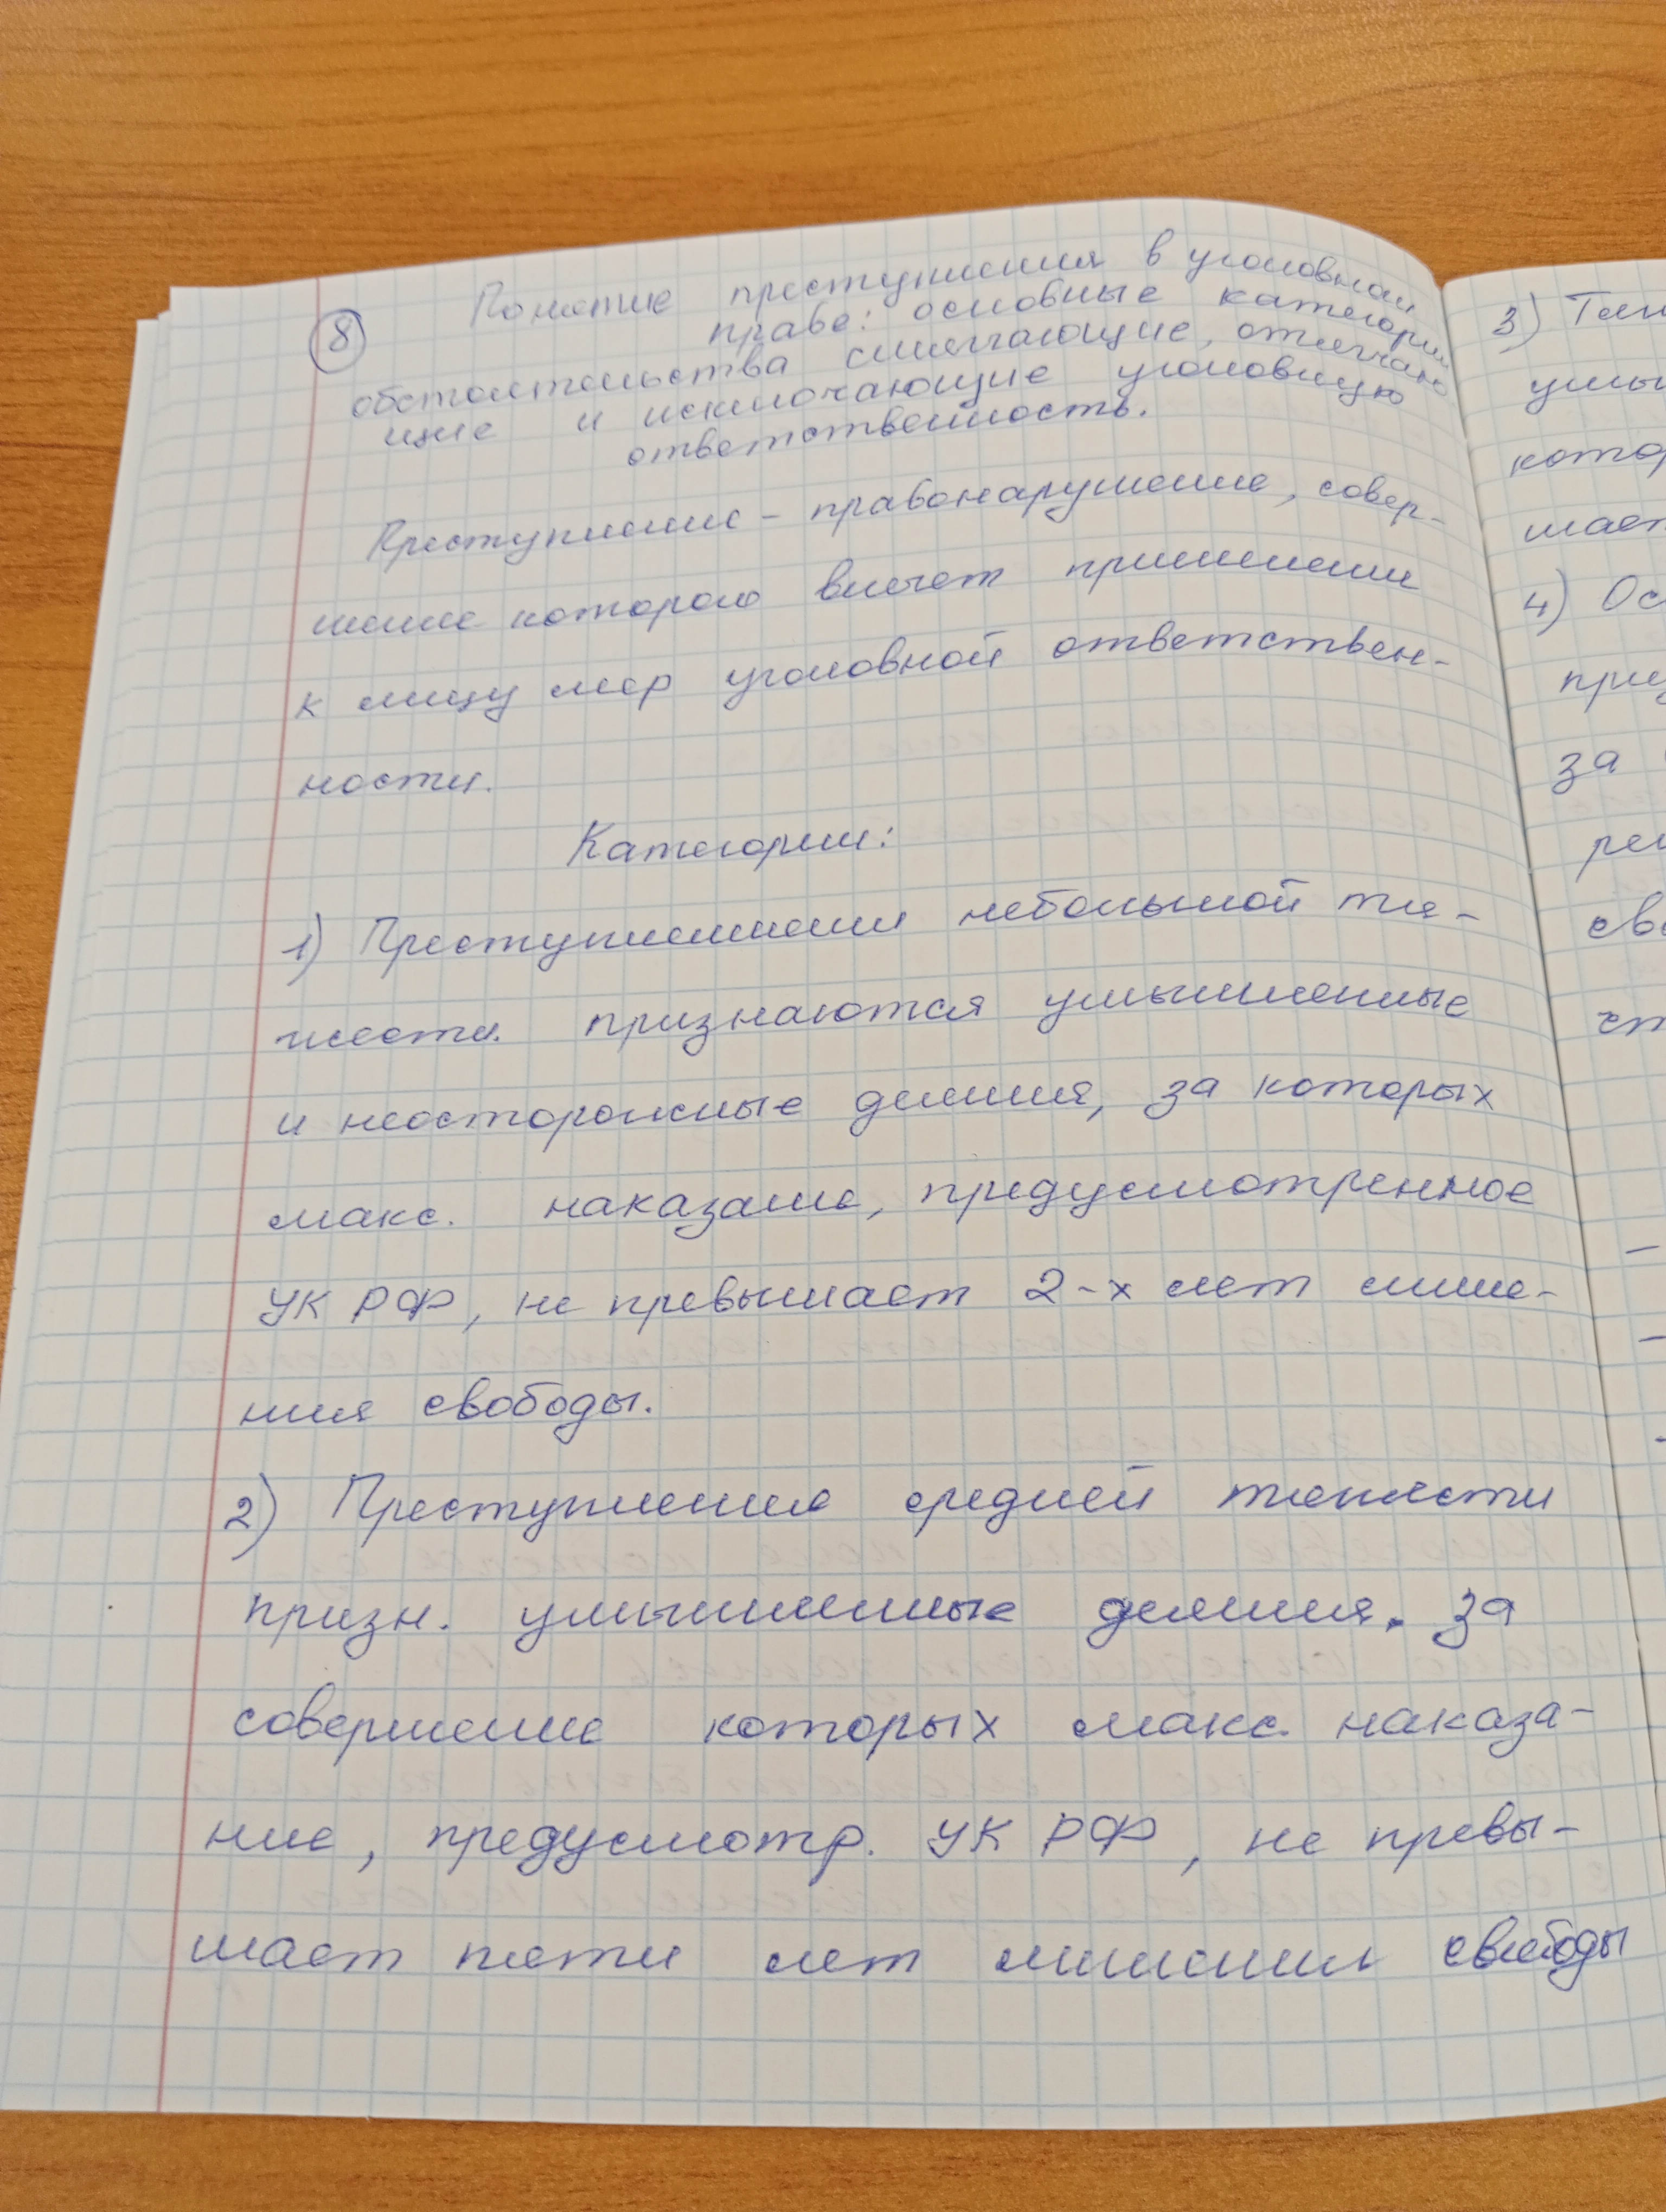 8 Понятие преступления в уголовном
праве: основные категории
обстоятельства смягчающие, отягчаю
щие и исключающие уголовную
ответственность.
Преступление - правонарушение, совер-
шение которого влечет применении
к лицу мер уголовной ответствен-
ности.
Категории:
1) Преступлениями небольшой тя-
жести признаются умышленные
и неосторожные деяния, за которых
макс. наказание, предусмотренное
УК РФ, не превышает 2-х лет лише-
ния свободы.
2) Преступления средней тяжести
призн. умышленные деяния. за
совершение которых макс. наказа-
ние, предусмотр. УК РФ, не превы-
шает пяти лет лишения свободы
3)
4)
за